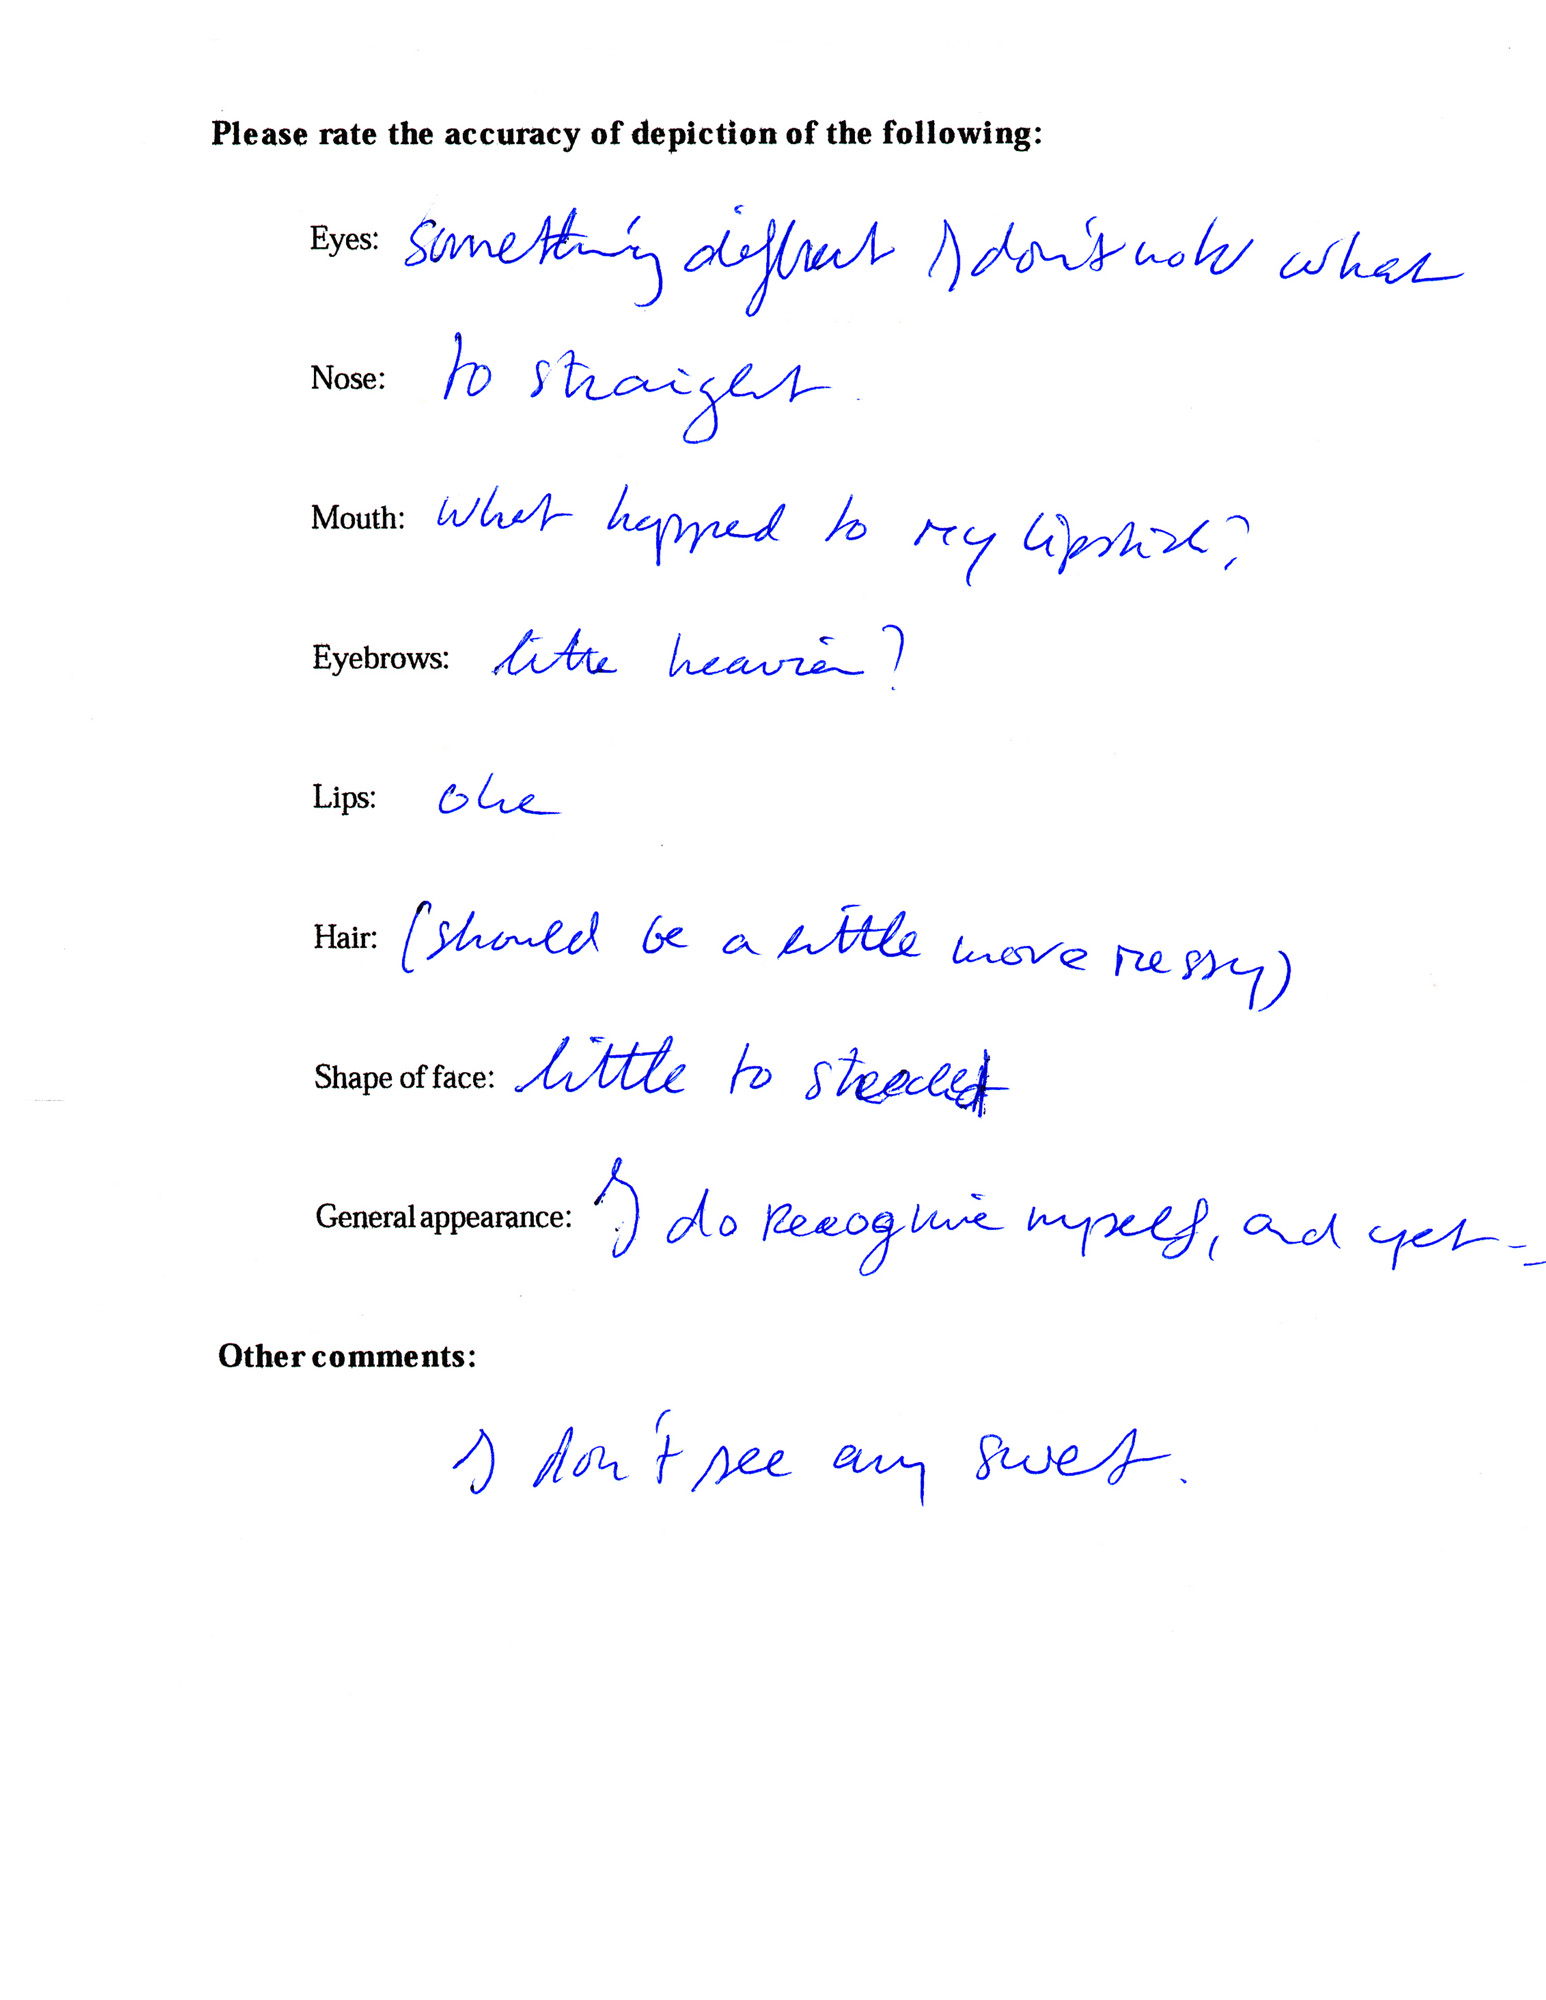 Please rate the accuracy of depiction of the following:
Eyes: something diffrent I don't know what
Nose: to straight
Mouth: What happned to my lipstick?
Eyebrows: little heavier?
Lips: oke
Hair: (should be a little more messy)
Shape of face: little to
General appearance: I do recognise myself, and yet --
Other comments:
I don't see any swet.